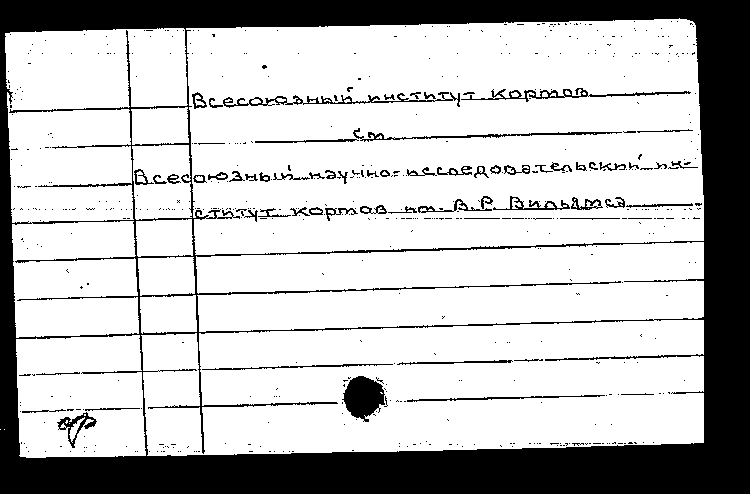 Всесоюзный институт кормов
см.
Всесоюзный научно-исследовательский ин-
ститут кормов им. В.Р. Вильямса